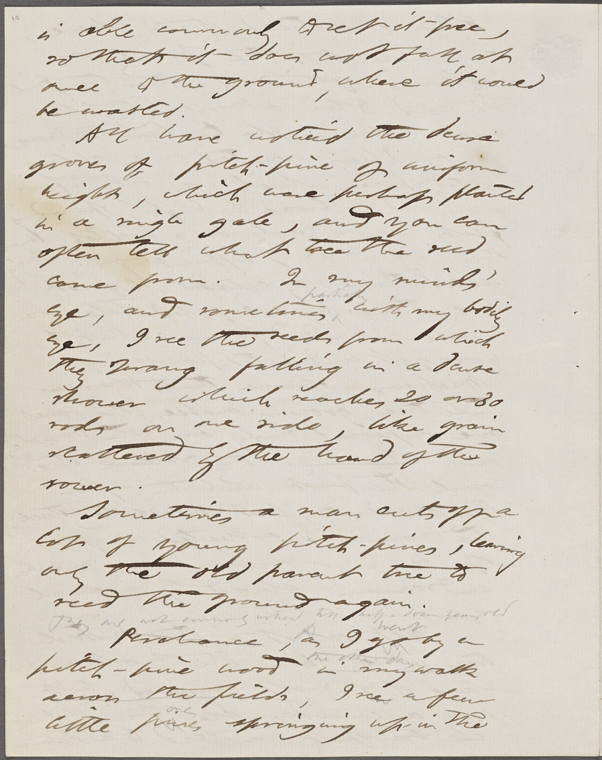 is able commonly to set it free,
so that it does not fall at
once to the ground, where it would
be wasted.
All have noticed the dense
groves of pitch-pine of uniform
height, which were perhaps planted
in a single gale, and you can
often tell what tree the seed
came from. In my minds'
perhaps
eye, and sometimes with my bodily
eye, I see the seeds from which
they sprang falling in a dense
shower which reaches 20 or 30
rods on one side, like grain
scattered by the hand of the
sower.
Sometimes a man cuts off a
lot of young pitch-pines, leaving
only the old parent tree to
seed the ground again.
They are not commonly noticed till half a dozen years old
Perchance, as I go by a
went
the other day
pitch-pine wood in my walk
across the fields, I see a few
one
little pines springing up in the